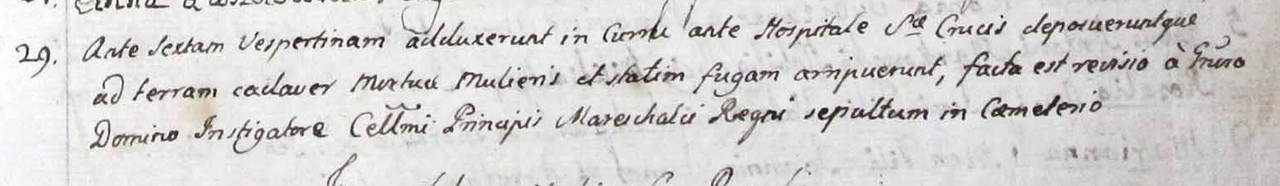 29. Ante Sextam Vespertinam adduxerunt in Curru ante Hospitale Stae Crucis deposueruntque
ad terram cadaver Mortua Mulieris et statim fugam arripuerunt, facta est revisio à
Domino Instigatore Cellmi Principis Mareschalii Regni sepultum in Caemeterio